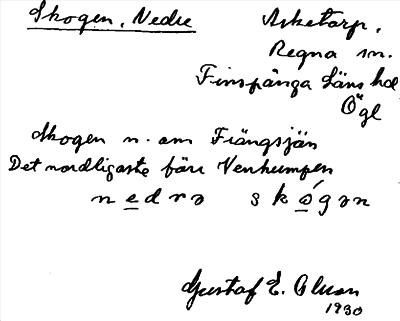 Skogen, Nedre
Asketorp,
Regna sn.
Finspånga läns hd
Ögl
Skogen n. om Frängsjön
Det nordligaste före Venhumpen
n e d r ə s k ó g ə n
Gustaf E. Olsson
1930